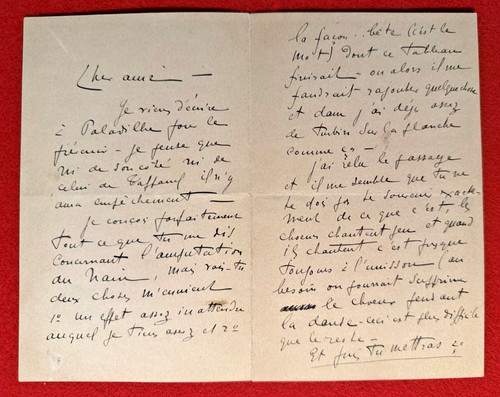 Cher ami —
Je viens d'écrire
à Paladilhe pour le
prévenir — je pense que
ni de son côté ni de
celui de Taffanel il n'y
aura empêchement —
Je conçois parfaitement
tout ce que tu me dis
concernant l'amputation
du Nain, mais vois-tu
deux choses m'ennuient
1o un effet assez inattendu
auquel je tiens assez et 2o
la façon bête (c'est le
mot) dont ce Tableau
finirait — ou alors il me
faudrait rajouter quelque chose
et dam j'ai déjà assez
de turbin sur la planche
comme ça —
j'ai relu le passage
et il me semble que tu ne
te dois pas te souvenir exacte-
ment de ce que c'est, les
chœurs chantent peu et quand
ils chantent c'est presque
toujours à l'unisson (au
besoin on pourrait supprimer
le chœur pendant
la danse — ceci est plus difficile
que le reste —
Et puis tu mettras